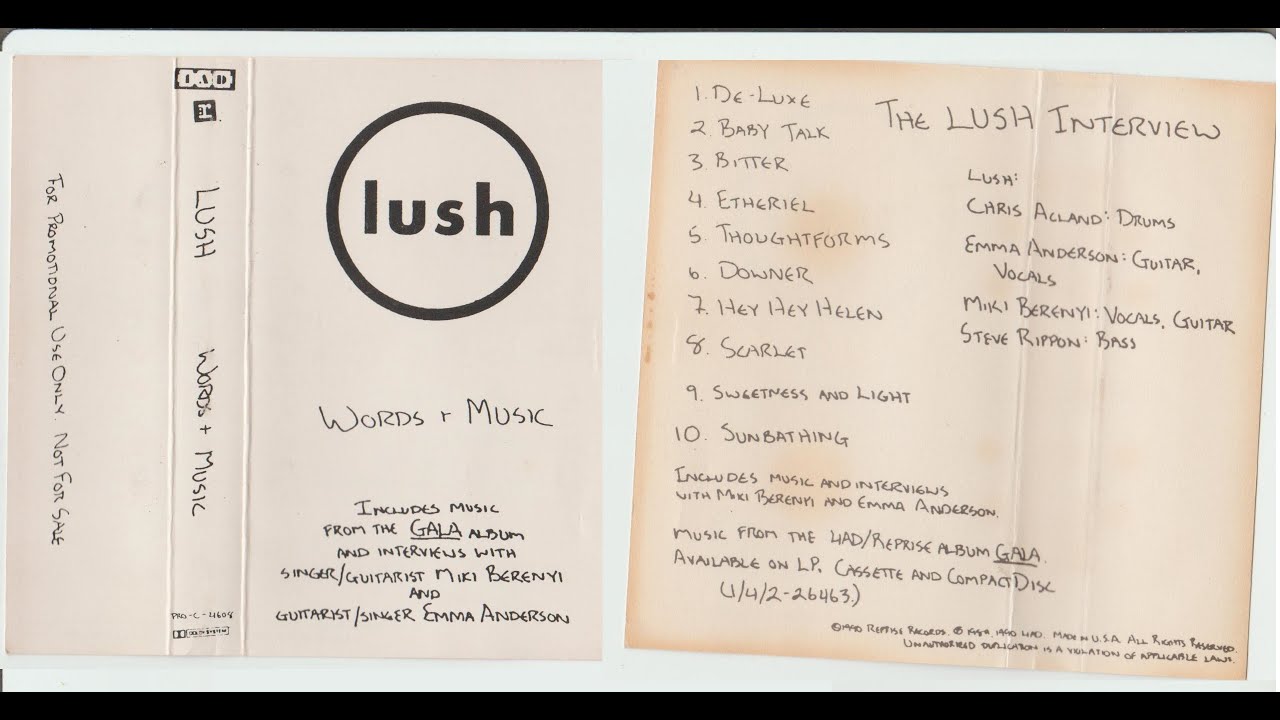 For Promotional Use Only. Not For Sale
4AD
r
LUSH WORDS + MUSIC
PRO-C-4608
DOLBY SYSTEM
lush
WORDS + MUSIC
INCLUDES MUSIC
FROM THE GALA ALBUM
AND INTERVIEWS WITH
SINGER/GUITARIST MIKI BERENYI
AND
GUITARIST/SINGER EMMA ANDERSON
THE LUSH INTERVIEW
1. DE-LUXE
2. BABY TALK
3. BITTER
4. ETHERIEL
5. THOUGHTFORMS
6. DOWNER
7. HEY HEY HELEN
8. SCARLET
9. SWEETNESS AND LIGHT
10. SUNBATHING
LUSH:
CHRIS ACLAND: DRUMS
EMMA ANDERSON: GUITAR,
VOCALS
MIKI BERENYI: VOCALS, GUITAR
STEVE RIPPON: BASS
INCLUDES MUSIC AND INTERVIEWS
WITH MIKI BERENYI AND EMMA ANDERSON.
MUSIC FROM THE 4AD/REPRISE ALBUM GALA.
AVAILABLE ON LP, CASSETTE AND COMPACT DISC
(1/4/2-26463.)
©1990 REPRISE RECORDS. ℗ 1989, 1990 4AD. MADE IN U.S.A. ALL RIGHTS RESERVED.
UNAUTHORIZED DUPLICATION IS A VIOLATION OF APPLICABLE LAWS.